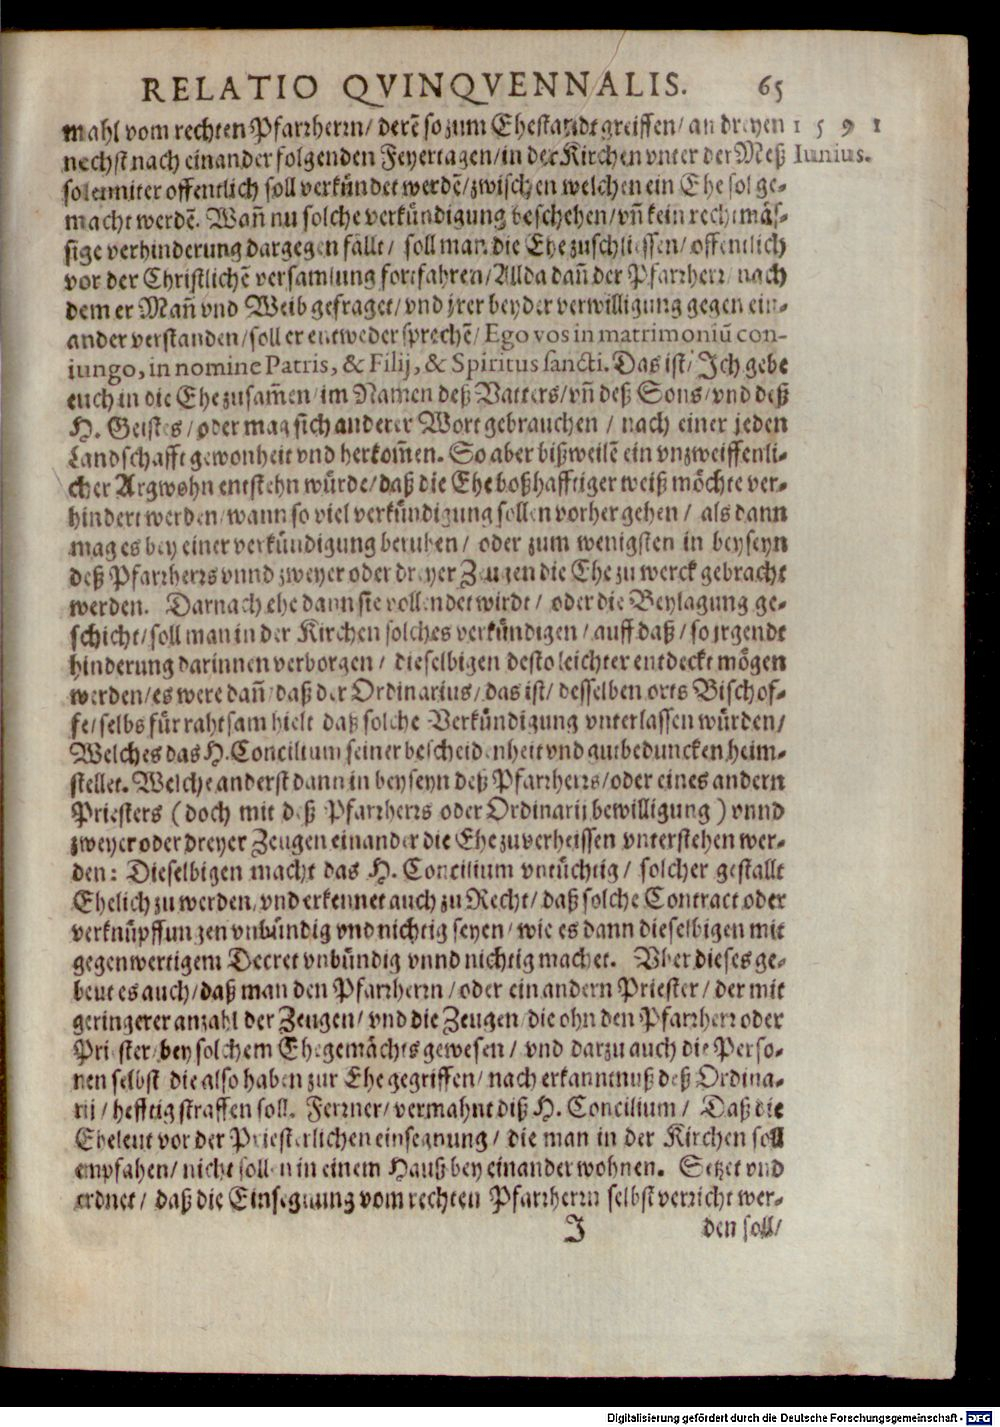 RELATIO QVINQVENNALIS. 65
mahl vom rechten Pfarrherrn/ derẽ so zum Ehestandt greiffen/ an dreyen 1591
nechst nach einander folgenden Feyertagen/ in der Kirchen vnter der Meß Iunius.
solenniter offentlich soll verkündet werdẽ/ zwischen welchen ein Ehe sol ge-
macht werdẽ. Wañ nu solche verkündigung beschehen/ vñ kein rechtmäs-
sige verhinderung dargegen fällt/ soll man die Ehe zuschliessen/ offentlich
vor der Christlichẽ versamlung fortfahren/ Allda dañ der Pfarrherr/ nach
dem er Mañ vnd Weib gefraget/ vnd jrer beyder verwilligung gegen ein-
ander verstanden/ soll er entweder sprechẽ/ Ego vos in matrimoniũ con-
iungo, in nomine Patris, & Filij, & Spiritus sancti. Das ist/ Ich gebe
euch in die Ehe zusam̃en/ im Namen deß Vatters/ vñ deß Sons/ vnd deß
H. Geistes/ oder mag sich anderer Wort gebrauchen/ nach einer jeden
Landschafft gewonheit vnd herkom̃en. So aber bißweilẽ ein vnzweiffenli-
cher Argwohn entstehn würde/ daß die Ehe boßhafftiger weiß möchte ver-
hindert werden/ wann so viel verkündigung sollen vorher gehen/ als dann
mag es bey einer verkündigung beruhen/ oder zum wenigsten in beyseyn
deß Pfarrherrs vnnd zweyer oder dreyer Zeugen die Ehe zu werck gebracht
werden. Darnach ehe dann sie vollendet wirdt/ oder die Beylagung ge-
schicht/ soll man in der Kirchen solches verkündigen/ auff daß/ so jrgendt
hinderung darinnen verborgen/ dieselbigen desto leichter entdeckt mögen
werden/ es were dañ/ daß der Ordinarius/ das ist/ desselben orts Bischof-
fe/ selbs für rahtsam hielt daß solche Verkündigung vnterlassen würden/
Welches das H. Concilium seiner bescheidenheit vnd gutbeduncken heim-
stellet. Welche anderst dann in beyseyn deß Pfarrherrs/ oder eines andern
Priesters (doch mit deß Pfarrherrs oder Ordinarij bewilligung) vnnd
zweyer oder dreyer Zeugen einander die Ehe zuverheissen vnterstehen wer-
den: Dieselbigen macht das H. Concilium vntüchtig/ solcher gestallt
Ehelich zu werden/ vnd erkennet auch zu Recht/ daß solche Contract oder
verknüpffungen vnbündig vnd nichtig seyen/ wie es dann dieselbigen mit
gegenwertigem Decret vnbündig vnnd nichtig machet. Vber dieses ge-
beut es auch/ daß man den Pfarrherrn/ oder ein andern Priester/ der mit
geringerer anzahl der Zeugen/ vnd die Zeugen/ die ohn den Pfarrherr oder
Priester/ bey solchem Ehegemächts gewesen/ vnd darzu auch die Perso-
nen selbst die also haben zur Ehe gegriffen/ nach erkanntnuß deß Ordina-
rij/ hefftig straffen soll. Ferrner/ vermahnt diß H. Concilium/ Daß die
Eheleut vor der Priesterlichen einsegnung/ die man in der Kirchen soll
empfahen/ nicht sollen in einem Hauß bey einander wohnen. Setzet vnd
ordnet/ daß die Einsegnung vom rechten Pfarrherrn selbst verricht wer-
I den soll/
Digitalisierung gefördert durch die Deutsche Forschungsgemeinschaft - DFG